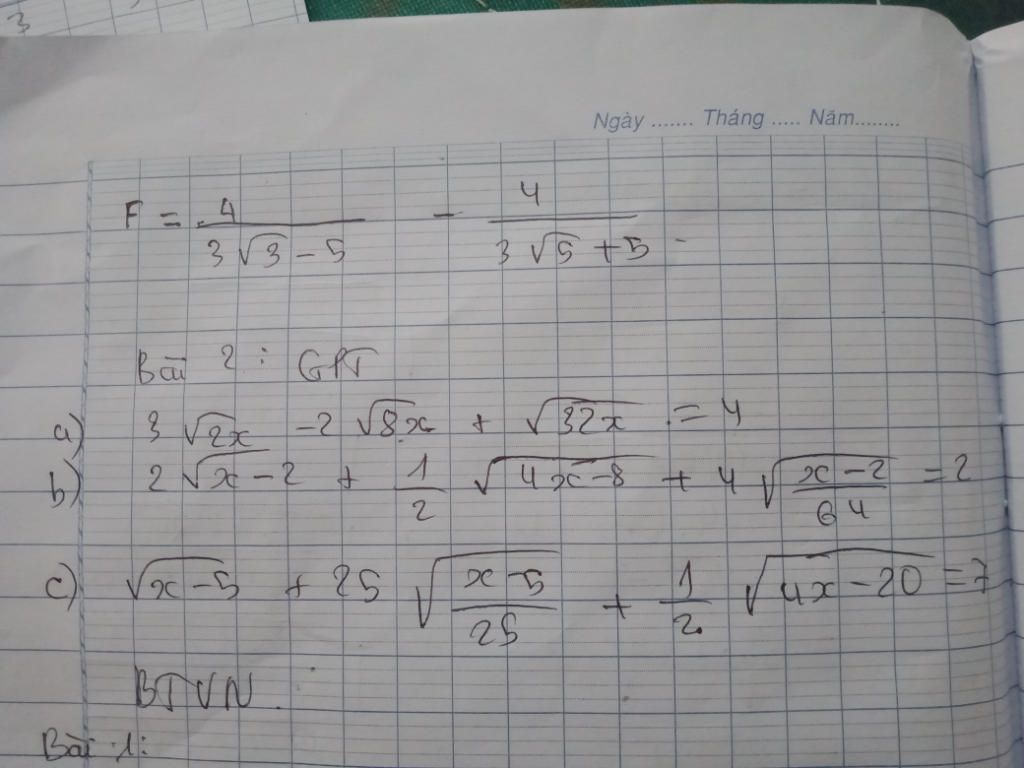 3
Ngày ....... Tháng ..... Năm........
F = 4/(3√3 - 5) - 4/(3√5 + 5)
Bài 2 : GPT
a) 3√2x - 2√8x + √32x = 4
b) 2√x-2 + 1/2 √4x-8 + 4√(x-2)/64 = 2
c) √x-5 + 25√(x-5)/25 + 1/2 √4x-20 = 7
BTVN :
Bài 1: